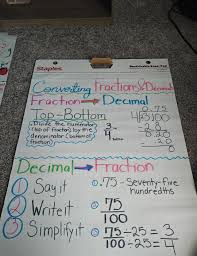 Staples
Converting Fractions & Decimals
Fraction → Decimal
Top-Bottom
Divide the numerator
(top of fraction) by the
denominator (bottom of
fraction)
3/4
0.75
4)3.00
-2 8
0.20
-20
0
Decimal → Fraction
① Say it
② Write it
③ Simplify it
① .75 - Seventy-five
hundredths
② 75/100
③ 75÷25=3
100÷25=4